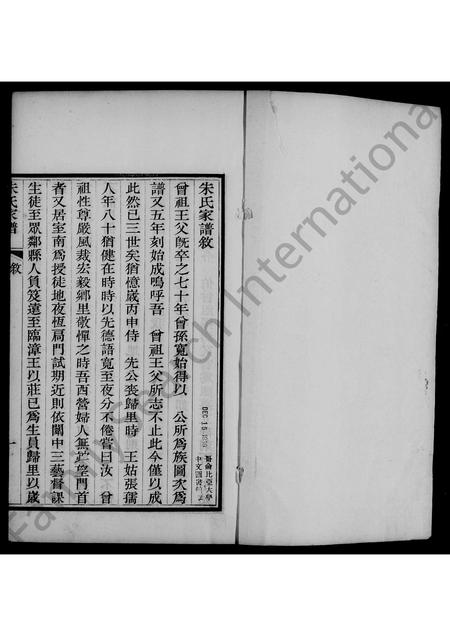 朱氏家譜敘
曾祖王父旣卒之七十年曾孫寬始得以 公所為族圖次為
譜又五年刻始成嗚呼吾 曾祖王父所志不止此今僅以成
此然已三世矣猶憶歲丙申侍 先公喪歸里時 王姑張孺
人年八十猶健在時時以先德語寬至夜分不倦嘗曰汝 曾
祖性尊嚴風裁宏毅鄉里敬憚之時吾西營婦人無竚望門首
者又居室南為授徒地夜恆扃門試期近則依闈中三藝督課
生徒至眾鄰縣人負笈遠至臨漳王以莊已為生員歸里以歲
朱氏家譜
敘
一
DEC 15 1939
哥倫比亞大學
中文圖書館
FamilySearch International